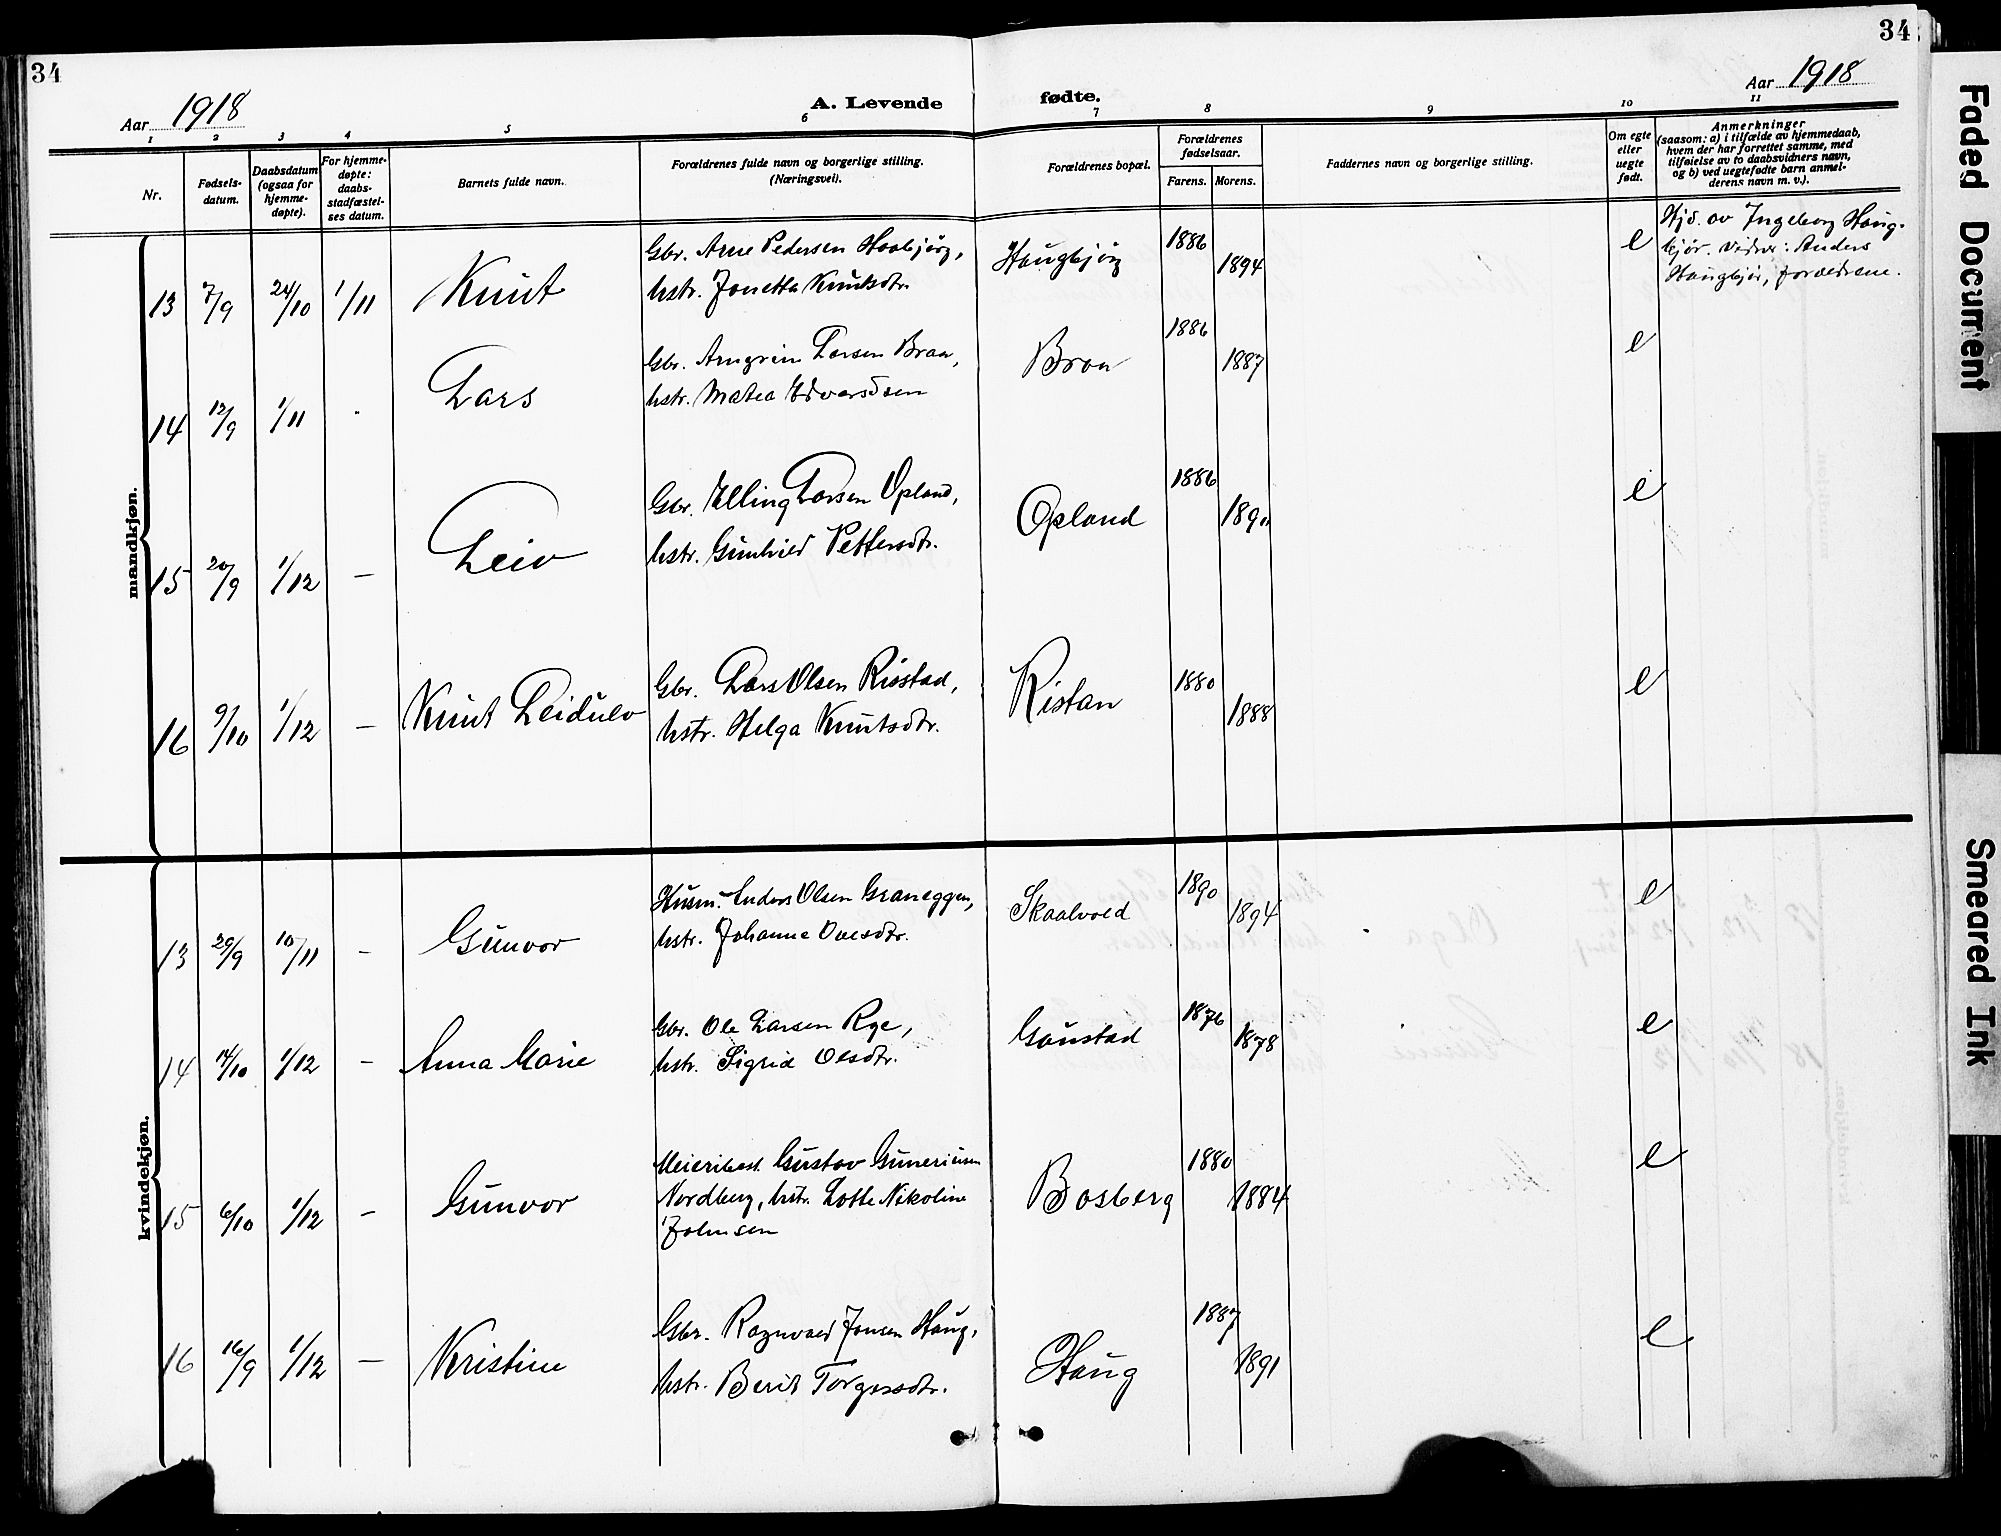 34
34
Aar 1918
A. Levende fødte.
Aar 1918
1 2 3 4 5 6 7 8 9 10 11
Nr.
Fødsels-
datum.
Daabsdatum
(ogsaa for
hjemme-
døpte).
For hjemme-
døpte:
daabs-
stadfæstel-
ses datum.
Barnets fulde navn.
Forældrenes fulde navn og borgerlige stilling.
(Næringsvei).
Forældrenes bopæl.
Forældrenes
fødselsaar.
Farens. Morens.
Faddernes navn og borgerlige stilling.
Om egte
eller
uegte
født.
Anmerkninger
(saasom: a) i tilfælde av hjemmedaab,
hvem der har forrettet samme, med
tilføielse av to daabsvidners navn,
og b) ved uegtefødte barn anmel-
derens navn m. v.).
mandkjøn.
13 7/9 24/10 1/11 Knut
Gbr. Arne Pedersen Haabjørg,
hstr. Jonetta Knutsdtr.
Haugbjørg 1886 1894 e
Hjd. av Ingeborg Haug-
bjør. Vidner: Anders
Haugbjør, forældrene.
14 12/9 1/11 Lars
Gbr. Arngrim Larsen Braa,
hstr. Matea Edvardsen
Braa 1886 1887 e
15 20/9 1/12 – Leiv
Gbr. Elling Larsen Opland,
hstr. Gunhild Pettersdtr.
Opland 1886 e
16 9/10 1/12 – Knut Leidulv
Gbr. Lars Olsen Risstad,
hstr. Helga Knutsdtr.
Ristan 1880 1888 e
kvindekjøn.
13 29/9 10/11 – Gunvor
Husm. Anders Olsen Graneggen,
hstr. Johanna Olesdtr.
Skaalvold 1890 1894 e
14 14/10 1/12 – Anna Marie
Gbr. Ole Larsen Rye,
hstr. Sigrid Olsdtr.
Gaustad 1876 1878 e
15 6/10 1/12 – Gunvor
Meieribest. Gustav Guneriusen
Nordberg, hstr. Lotte Nikoline
Johnsen
Bosberg 1880 1884 e
16 16/9 1/12 – Kristine
Gbr. Ragnvald Jonsen Haug,
hstr. Berit Torgersdtr.
Haug 1887 1891 e
Faded Document
Smeared Ink